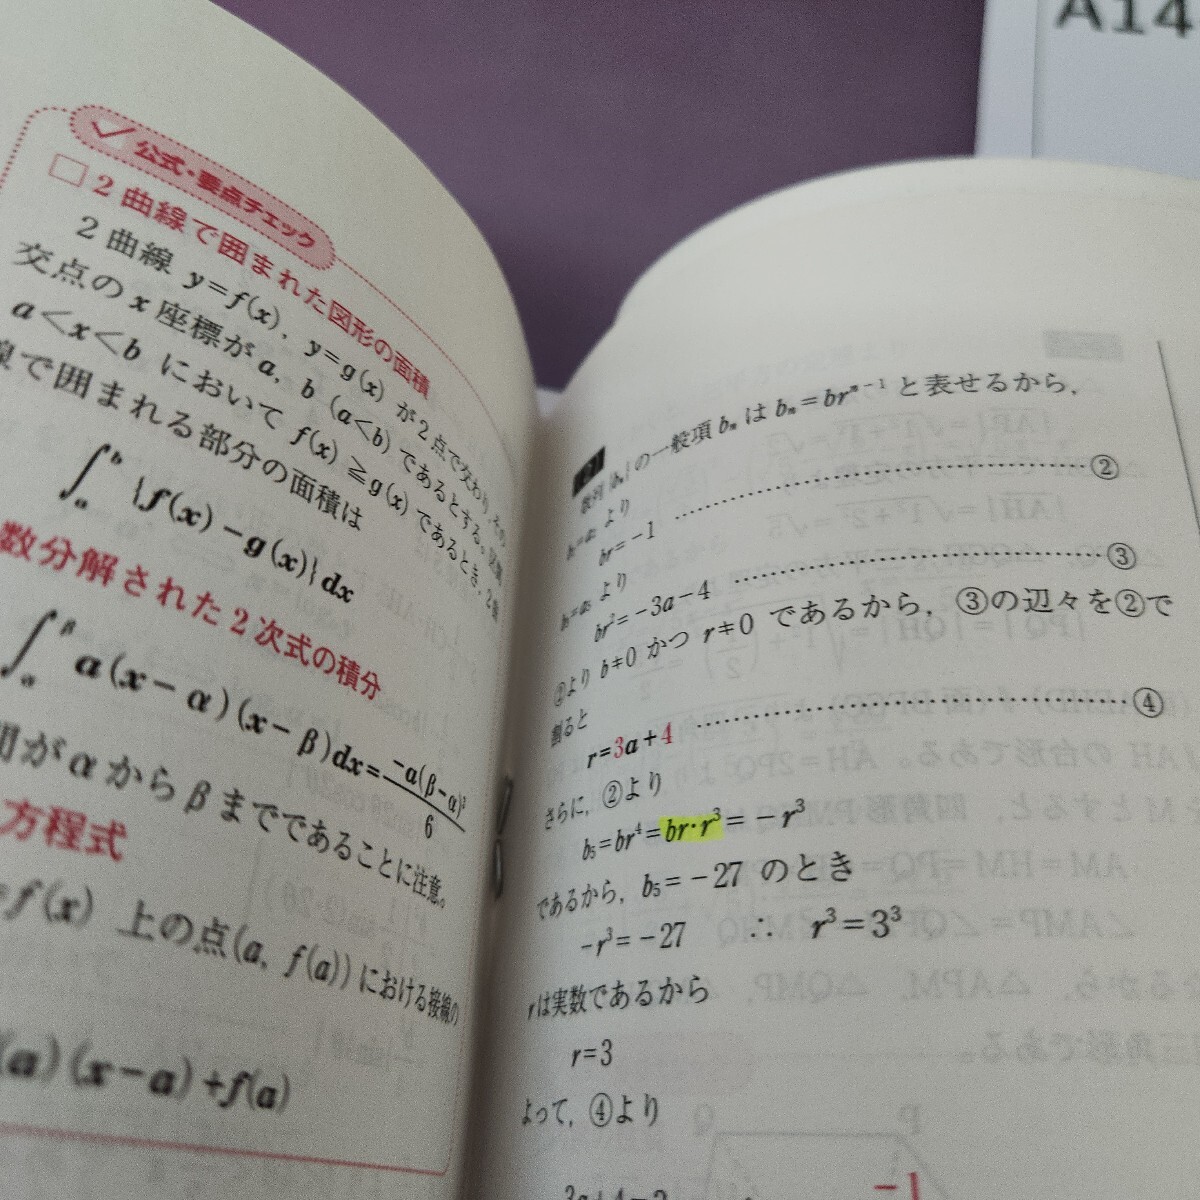 A14
公式・要点チェック
□2曲線で囲まれた図形の面積
2曲線 y=f(x), y=g(x) が2点で交わり, その
交点の x 座標が a, b (a<b) であるとする。区間
a<x<b において f(x)≧g(x) であるとき, 2曲
線で囲まれる部分の面積は
∫ₐᵇ {f(x)−g(x)}dx
数分解された2次式の積分
∫_α^β a(x−α)(x−β)dx=−a(β−α)³/6
間がαからβまでであることに注意。
方程式
=f(x) 上の点(a, f(a))における接線の
(a)(x−a)+f(a)
数列{bₙ}の一般項 bₙ は bₙ=brⁿ⁻¹ と表せるから,
b₂=a₂ より
br=−1 ……②
b₃=a₃ より
br²=−3a−4 ……③
②より b≠0 かつ r≠0 であるから, ③の辺々を②で
割ると
r=3a+4 ……④
さらに, ②より
b₅=br⁴=br・r³=−r³
であるから, b₅=−27 のとき
−r³=−27 ∴ r³=3³
rは実数であるから
r=3
よって, ④より
3a+4=3
−1